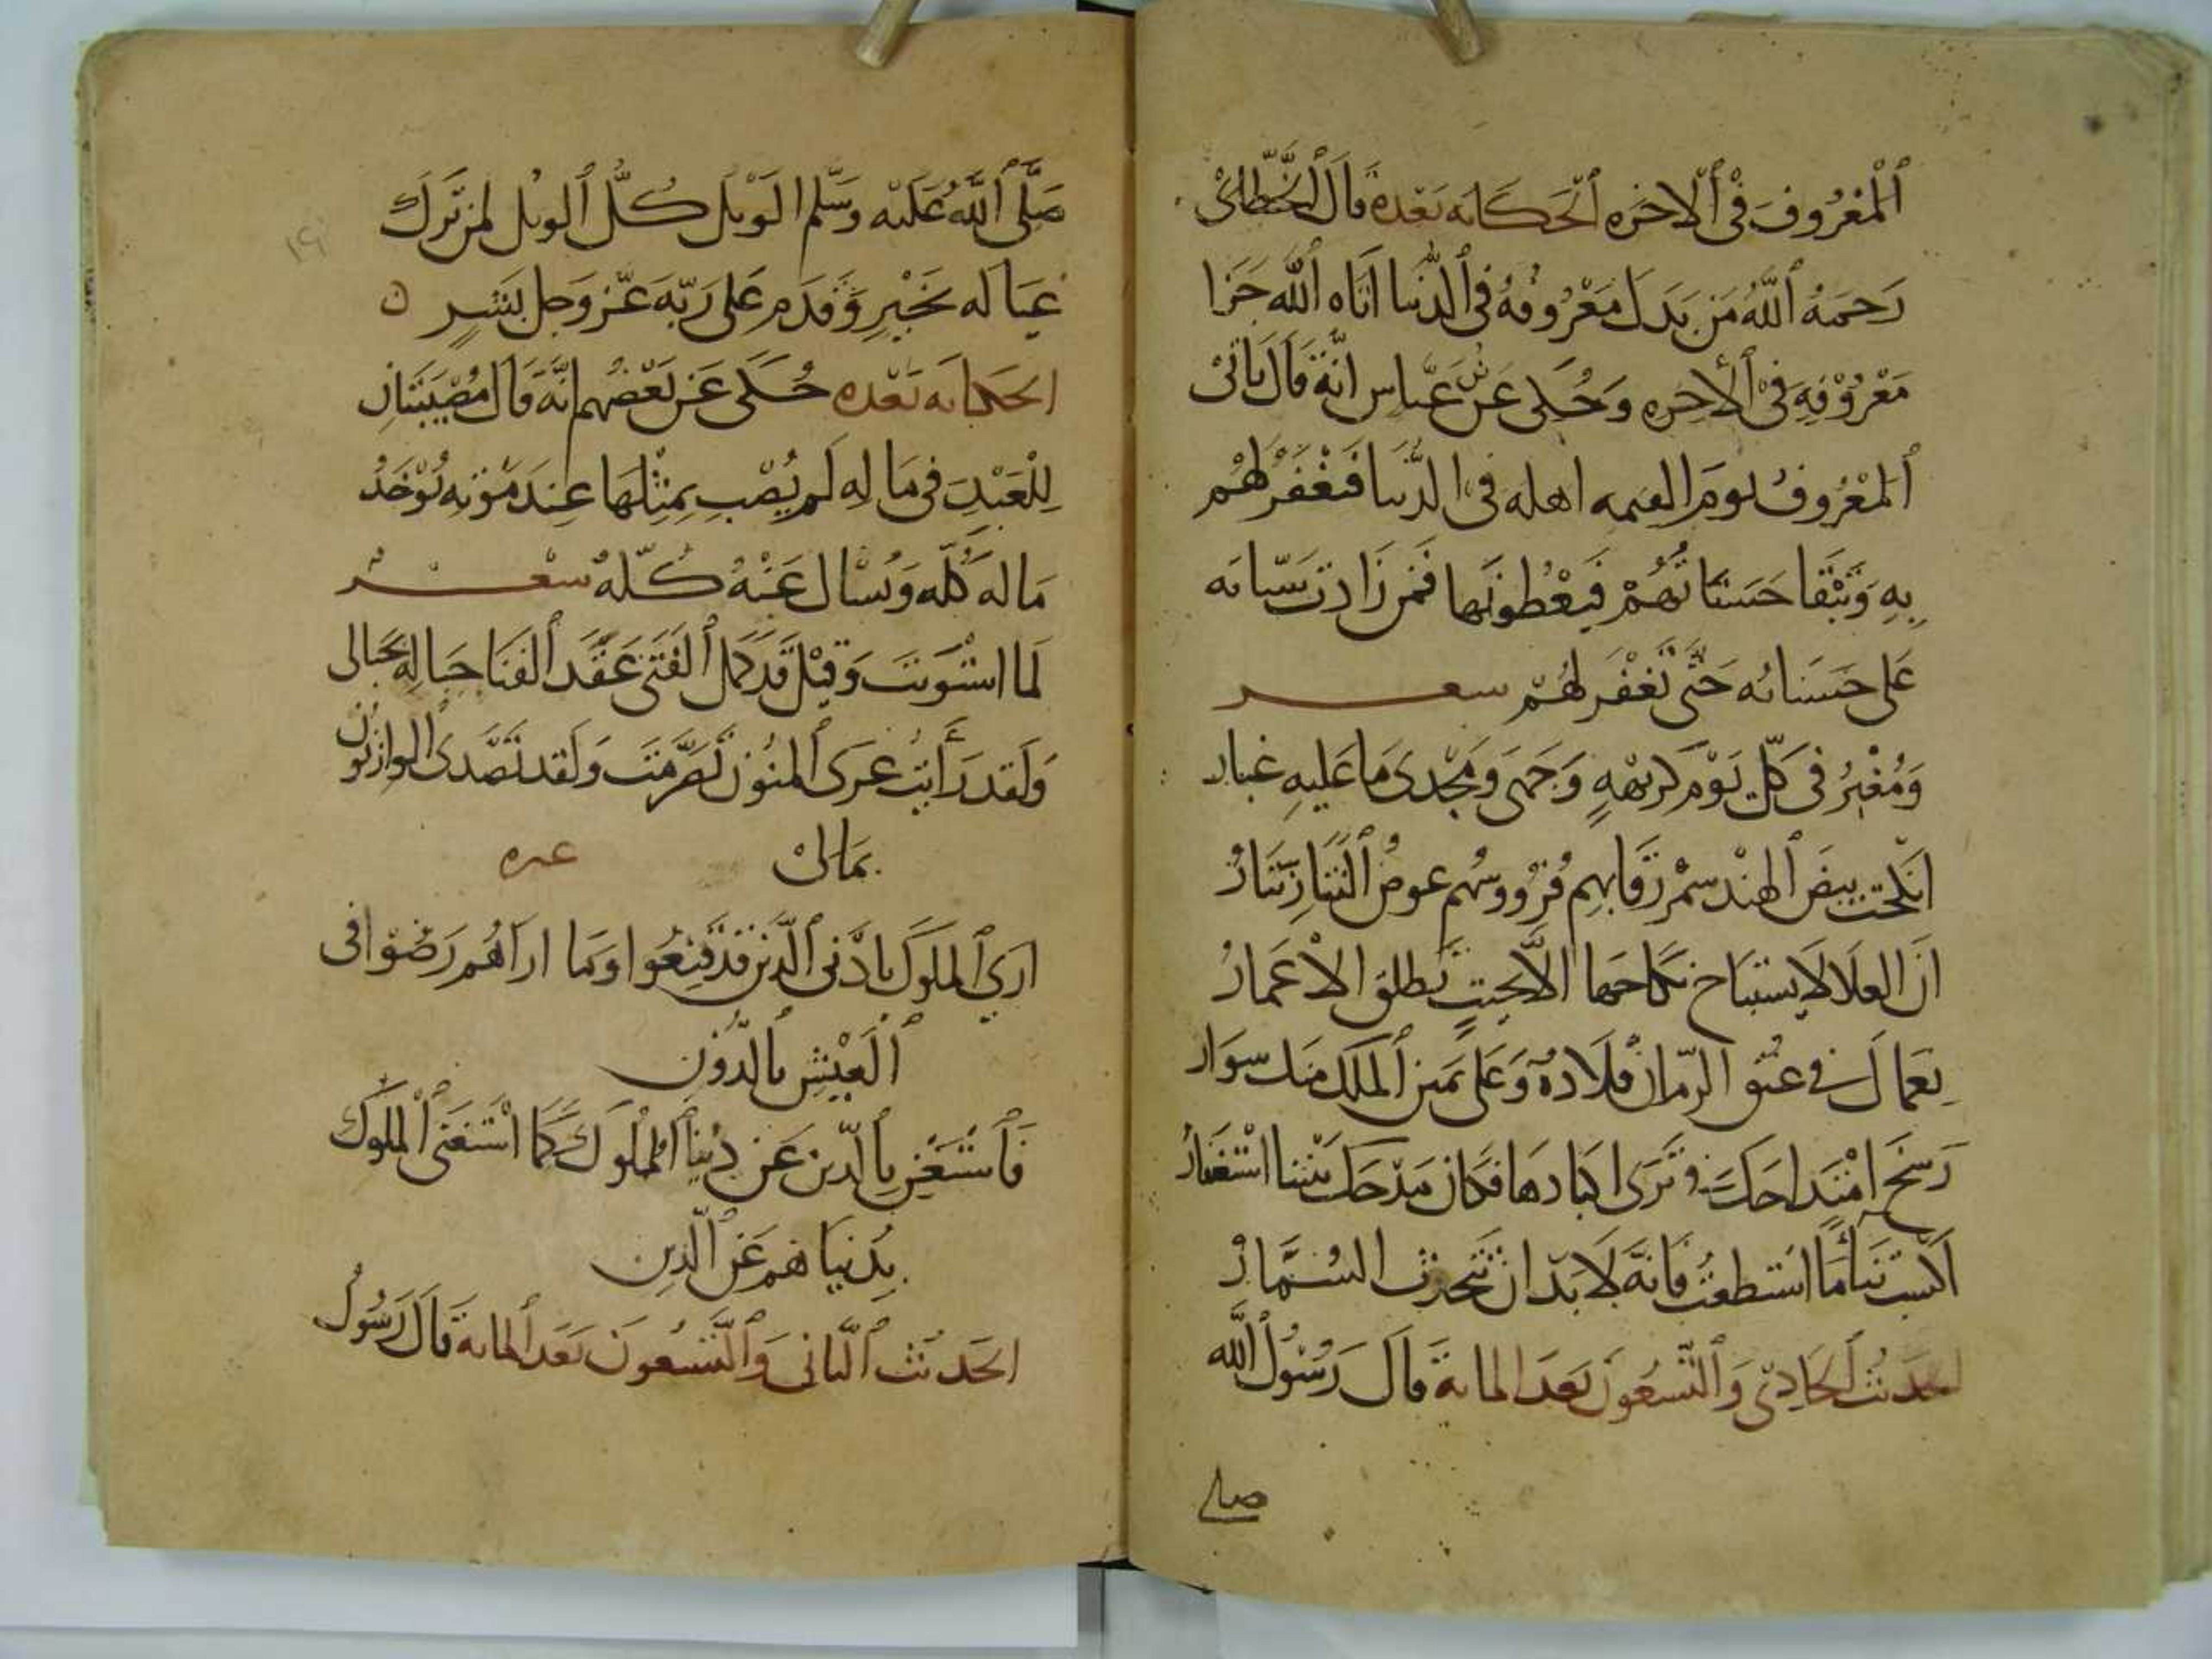 ٱلْمَعْرُوفَ فِي ٱلْاخره ٱلْحَكَايه بَعْده قَالَ ٱلْخَطَّابِيْ
رَحمَهُ ٱللَّهُ مَن بَدلَ مَعْرُوفهُ فِى ٱلدُّنيا اتَاه ٱللَّه جَزا
مَعْرُوْفِهِ فِىْ ٱلْأخِره وَحُكى عَنْ عَبّاس انَّهُ قَالَ يَاتِىْ
ٱلمَعْرُوفُ يومَ القيمه اهله فِى الدُّنيا فَيَغْفَرُ لهُم
بِهِ وَتَبْقا حَسَنَاتُهُمْ فَيعْطُونَها فمَن زَادت سَيّاته
عَلى حَسَناته حَتّى يُغْفَر لَهُمْ سعر
وَمُغْبِرُ فى كلّ يَوْم كريهْهٍ وَجهى وَمَجْدى مَا عَليهِ غبار
انكحت بيضَ ٱلهِنْد سمْر رقَابهم فرووسُهم عوضُ النثَار نثَارُ
انَّ العلَا لَا يستبَاح نكَاحهَا الَّا بحيتٍ تطلق الاعمَارُ
نعمَا لَك فى عنُق الزمَان قلَادةٌ وَعَلى يَمين ٱلملك منك سوَار
رَسخَ امْتدَاحكَ وَتَرى اكبادهَا فكان مَدْحك بيننا اسْتغفَارُ
اكسب ثنَاءً مَا استطعتُ فَانهُ لَا بدّ ان تتحدث السُّمّارُ
الحَديثُ ٱلحَادِىْ وَٱلتّسْعُونَ بَعدَ الماىةَ قالَ رَسُوْلُ ٱللَّه
صلى
صَلَّى ٱللَّهُ عَلَيْه وَسَّلم الوَيل كُلُّ ٱلويْل لمَن تَركَ
عيَاله بَخَيْرٍ وَقَدمَ عَلى رَبّهَ عَزّ وَجل بَشرٍ ن
الحَكايه بَعْده حُكىَ عَن بَعْضُهم انَّهَ قَالَ مُصْيَبَتَانِ
لِلْعَبْدِ فى مَاله لَم يُصْب بِمِثْلهَا عِندَ مَوْته يُوْخَذُ
مَاله كُلّه وَيسْال عَنْهُ كُلّهُ سعْر
لَما استَوَيتَ وَقِيْلَ قَد كمل ٱلْفَتَى عَقَد ٱلفَنَا حِبَالِهِ بحَبالى
وَلَقد رَأيتُ عرَى ٱلمنُون تصَرّمتَ وَلقد تصَدى الوارثون
بمَالىْ عىره
ارى ٱلملوكَ بادْنى ٱلدّين قَد قَنِعُوا وَمَا ارَاهُم رَضُوْا فى
ٱلْعَيْشِ بالدُّوْنِ
فَٱسْتَغْنِ بِٱلدّين عَن دنيا ٱلملُوكَ كَما اسْتَغنَى ٱلملوك
بدنيَاهم عَن ٱلدّين
الحَديث ٱلثّانى وَٱلتّسْعونَ بَعَد ٱلمايةَ قالَ رَسُوْلُ